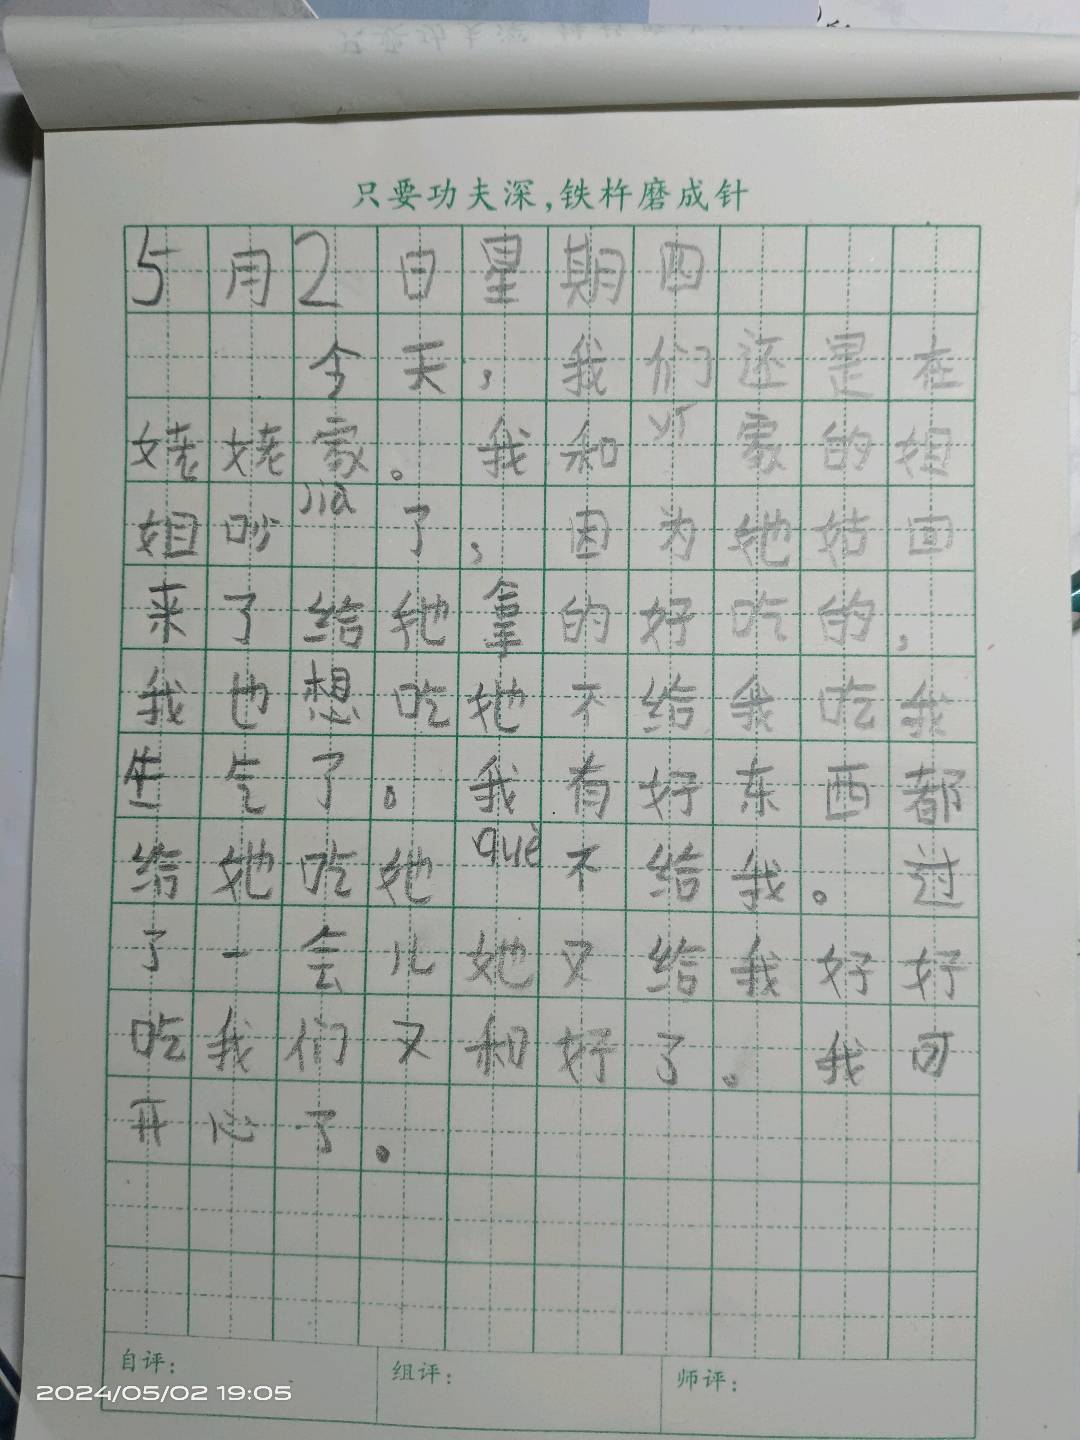 只要功夫深,铁杵磨成针
5月2日星期四
今天,我们还是在
姥姥家。我和 家的姐
姐吵jia了,因为她姑回
来了给她拿的好吃的,
我也想吃她不给我吃我
生气了。我有好东西都
给她吃她què不给我。过
了一会儿她又给我好好
吃我们又和好了。我可
开心了。
自评: 组评: 师评:
2024/05/02 19:05